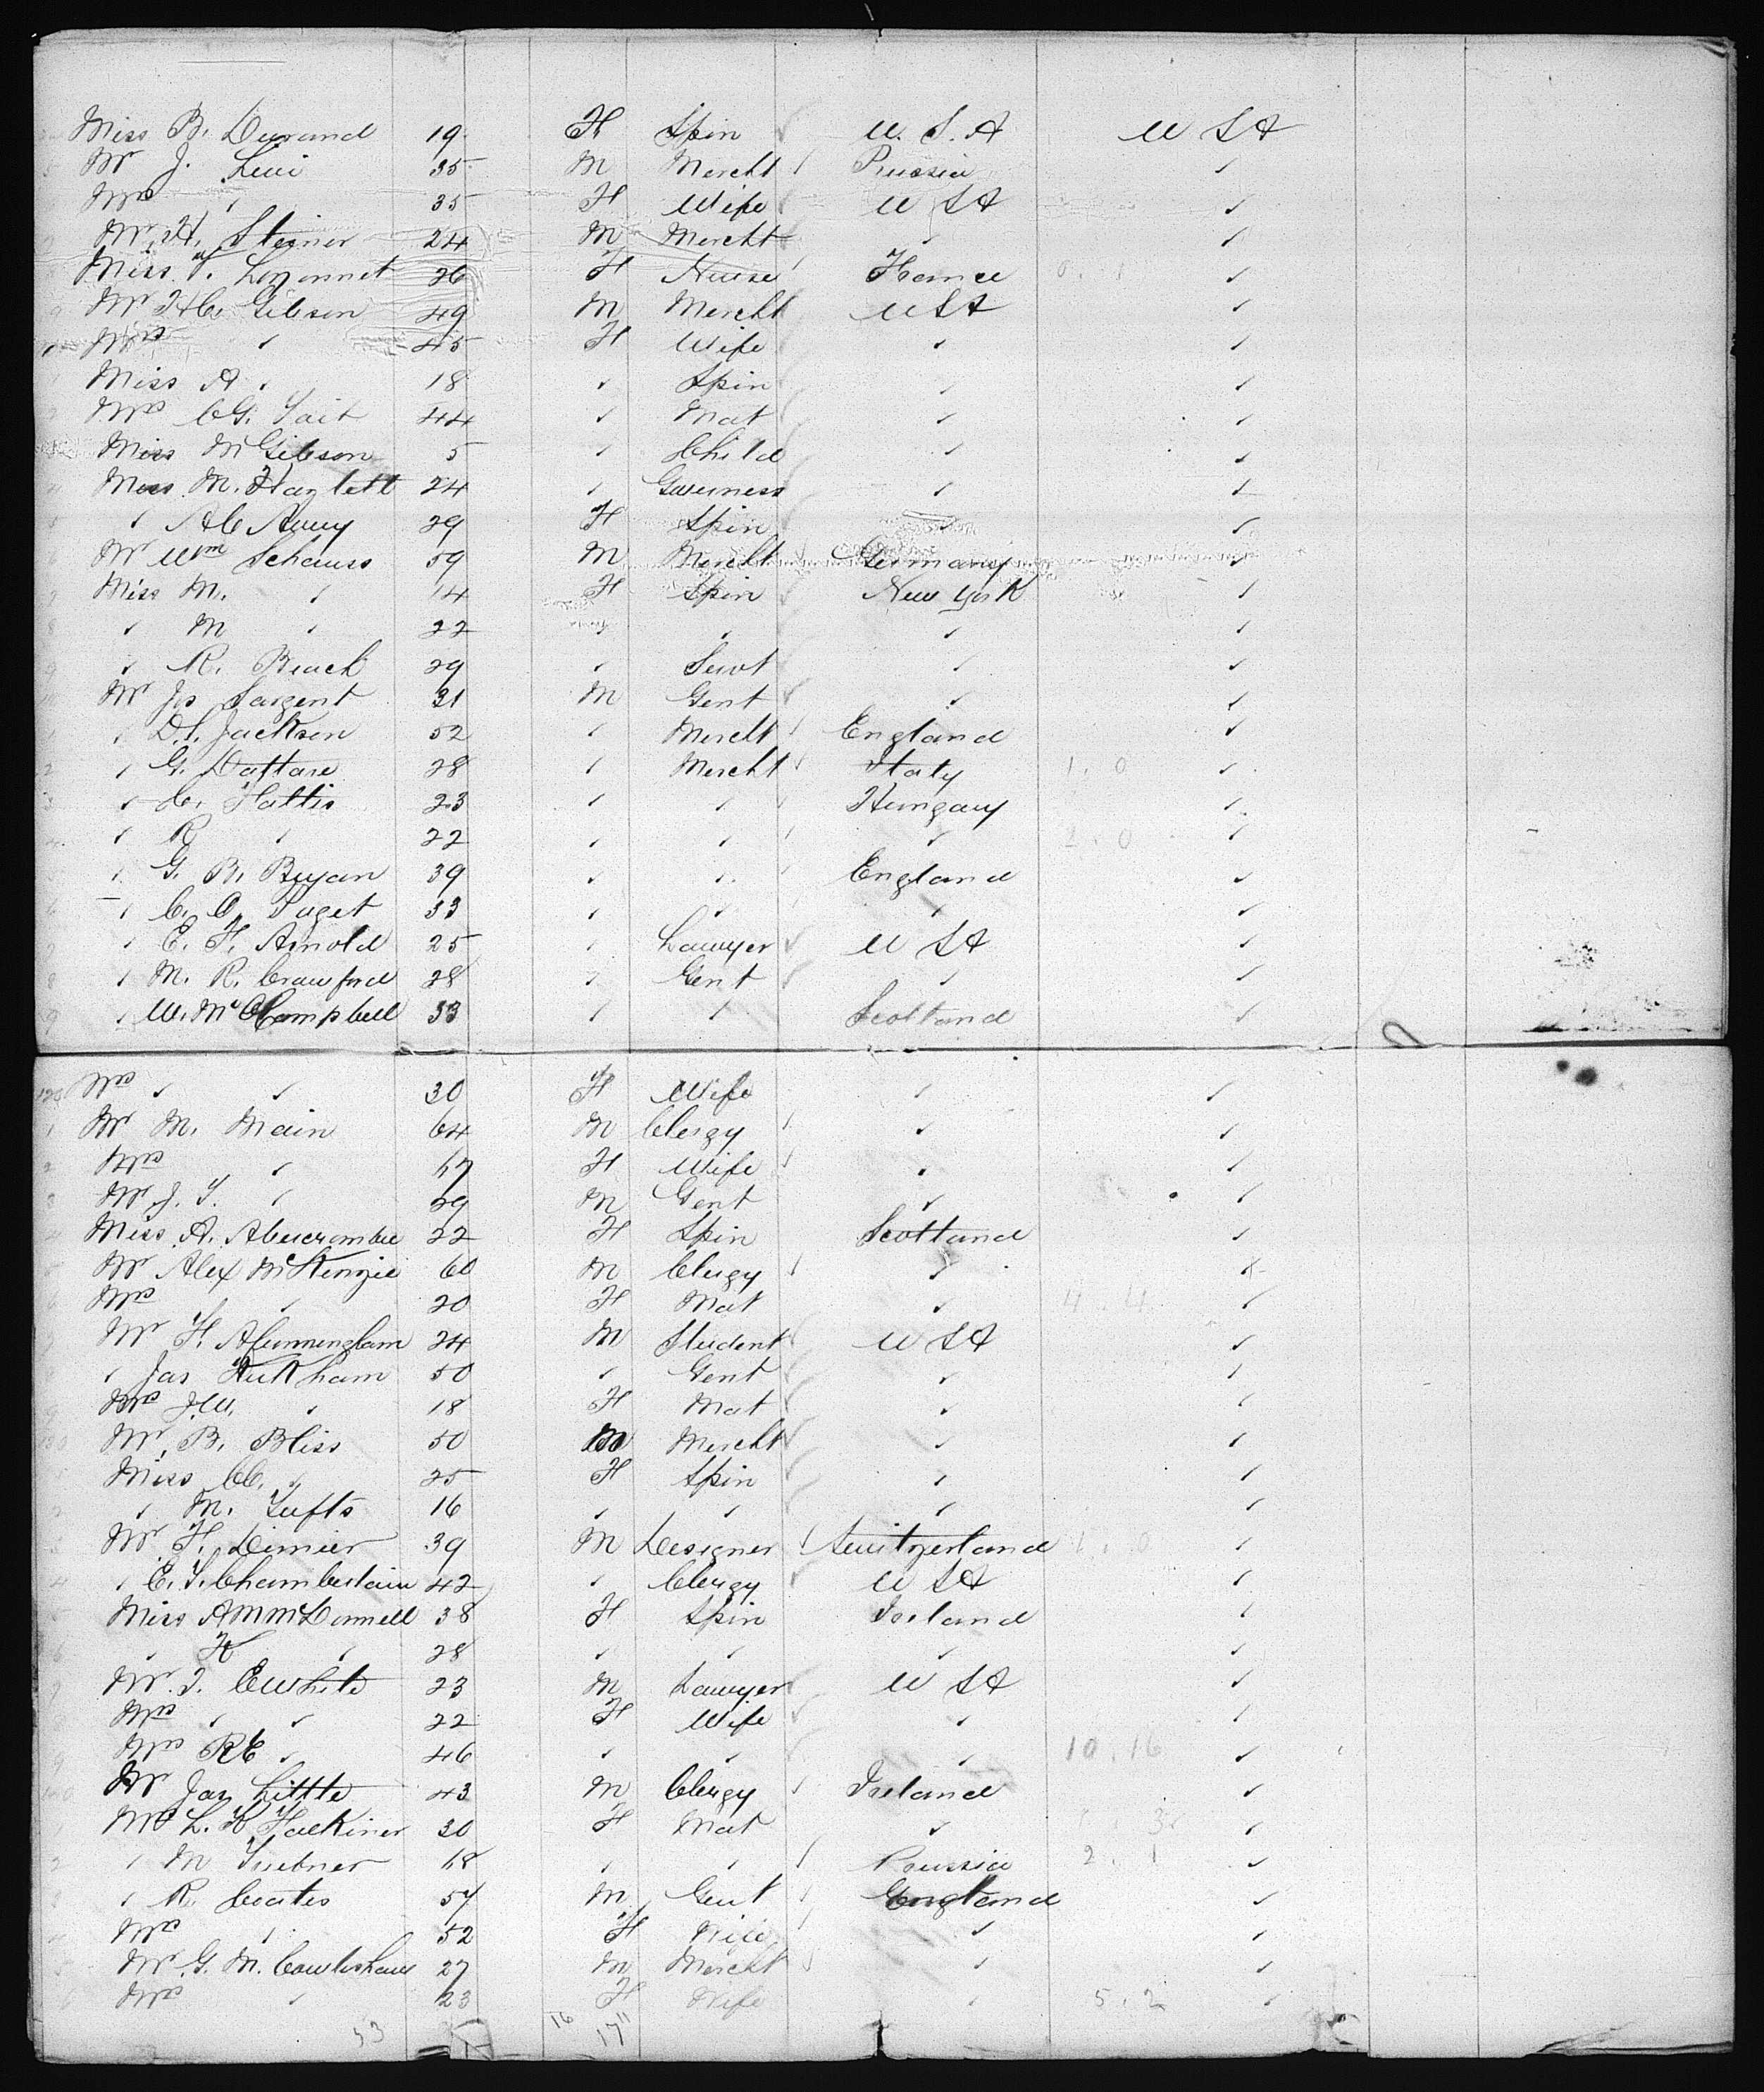 Miss B. Durand 19 F Spin U. S. A U S A
Mr J. Levi 35 M Mercht Prussia ✓
Mrs ✓ 35 F Wife U S A ✓
Mr H. Steiner 24 M Mercht ✓ ✓
Miss 26 F Nurse France ✓
Mr H C. Gibson 49 M Mercht U S A ✓
Mrs ✓ 45 F Wife ✓ ✓
Miss A ✓ 18 ✓ Spin ✓ ✓
Mrs C G. Tait 44 ✓ Mat ✓ ✓
Miss M Gibson 5 ✓ Child ✓ ✓
Miss M. Hazlett 24 ✓ Governess ✓ ✓
✓ 29 F Spin ✓ ✓
Mr Wm Schauss 59 M Mercht Germany ✓
Miss M. ✓ 14 F Spin New York ✓
✓ M ✓ 22 ✓ ✓ ✓ ✓
✓ R. 29 ✓ Servt ✓ ✓
Mr Js Sargent 31 M Gent ✓ ✓
✓ D. S. Jackson 52 ✓ Mercht England ✓
✓ G. Dattari 28 ✓ Mercht Italy 1. 0 ✓
✓ 23 ✓ ✓ Hungary ✓
✓ R ✓ 22 ✓ ✓ ✓ 2. 0 ✓
✓ G. B. Bryan 39 ✓ ✓ England ✓
✓ C. O. Paget 33 ✓ ✓ ✓ ✓
✓ E. F. Arnold 25 ✓ Lawyer U S A ✓
✓ M. R. Crawford 28 ✓ Gent ✓ ✓
✓ W. Mc Campbell 33 ✓ ✓ Scotland ✓
Mrs ✓ ✓ 30 F Wife ✓ ✓
Mr M. Main 64 M Clergy ✓ ✓
Mrs ✓ F Wife ✓ ✓
Mr J. S. ✓ 29 M Gent ✓ ✓
Miss A. Abercrombie 22 F Spin Scotland ✓
Mr Alex McKenzie 60 M Clergy ✓ ✓
Mrs ✓ 20 F Mat ✓ 4. 4 ✓
Mr F. A Cunningham 24 M Student U S A ✓
✓ Jas Kirkham 50 ✓ Gent ✓ ✓
Mrs J. W. ✓ 18 F Mat ✓ ✓
Mr B. Bliss 50 M Mercht ✓ ✓
Miss C C. ✓ 25 F Spin ✓ ✓
✓ M. Tufts 16 ✓ ✓ ✓ ✓
Mr F. Dimier 39 M Designer Switzerland ✓
✓ E. S. Chamberlain 42 ✓ Clergy U S A ✓
Miss A M McDonnell 38 F Spin Ireland ✓
✓ K ✓ 28 ✓ ✓ ✓ ✓
Mr J. E White 23 M Lawyer U S A ✓
Mrs ✓ ✓ 22 F Wife ✓ ✓
Mrs R E ✓ 46 ✓ ✓ ✓ 10. 16 ✓
Mr Jas Little 43 M Clergy Ireland ✓
L. K Falkiner 30 F Mat ✓ ✓
✓ M ✓ ✓ Prussia 2. 1 ✓
✓ R. Coates 57 M Gent England ✓
Mrs ✓ 52 F Wife ✓ ✓
Mr G. M. 27 M Mercht ✓ ✓
Mrs ✓ 23 F Wife ✓ 5. 2 ✓
53 16 17